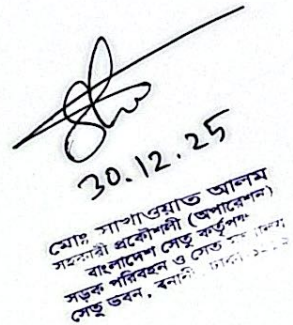 30.12.25
মোঃ সাখাওয়াত আলম
সহকারী প্রকৌশলী (অপারেশন)
বাংলাদেশ সেতু কর্তৃপক্ষ
সড়ক পরিবহন ও সেতু
সেতু ভবন, বনানী, ঢাকা